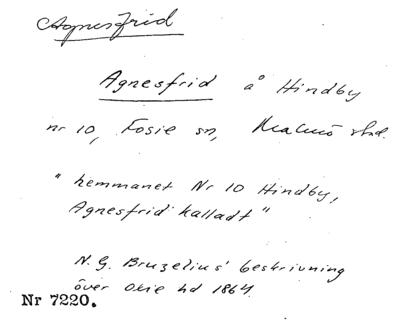 Agnesfrid
Agnesfrid å Hindby
nr 10, Fosie sn, Malmö stad.
"hemmanet Nr 10 Hindby,
Agnesfrid kalladt"
N. G. Bruzelius' beskrivning
över Oxie hd 1864.
Nr 7220.